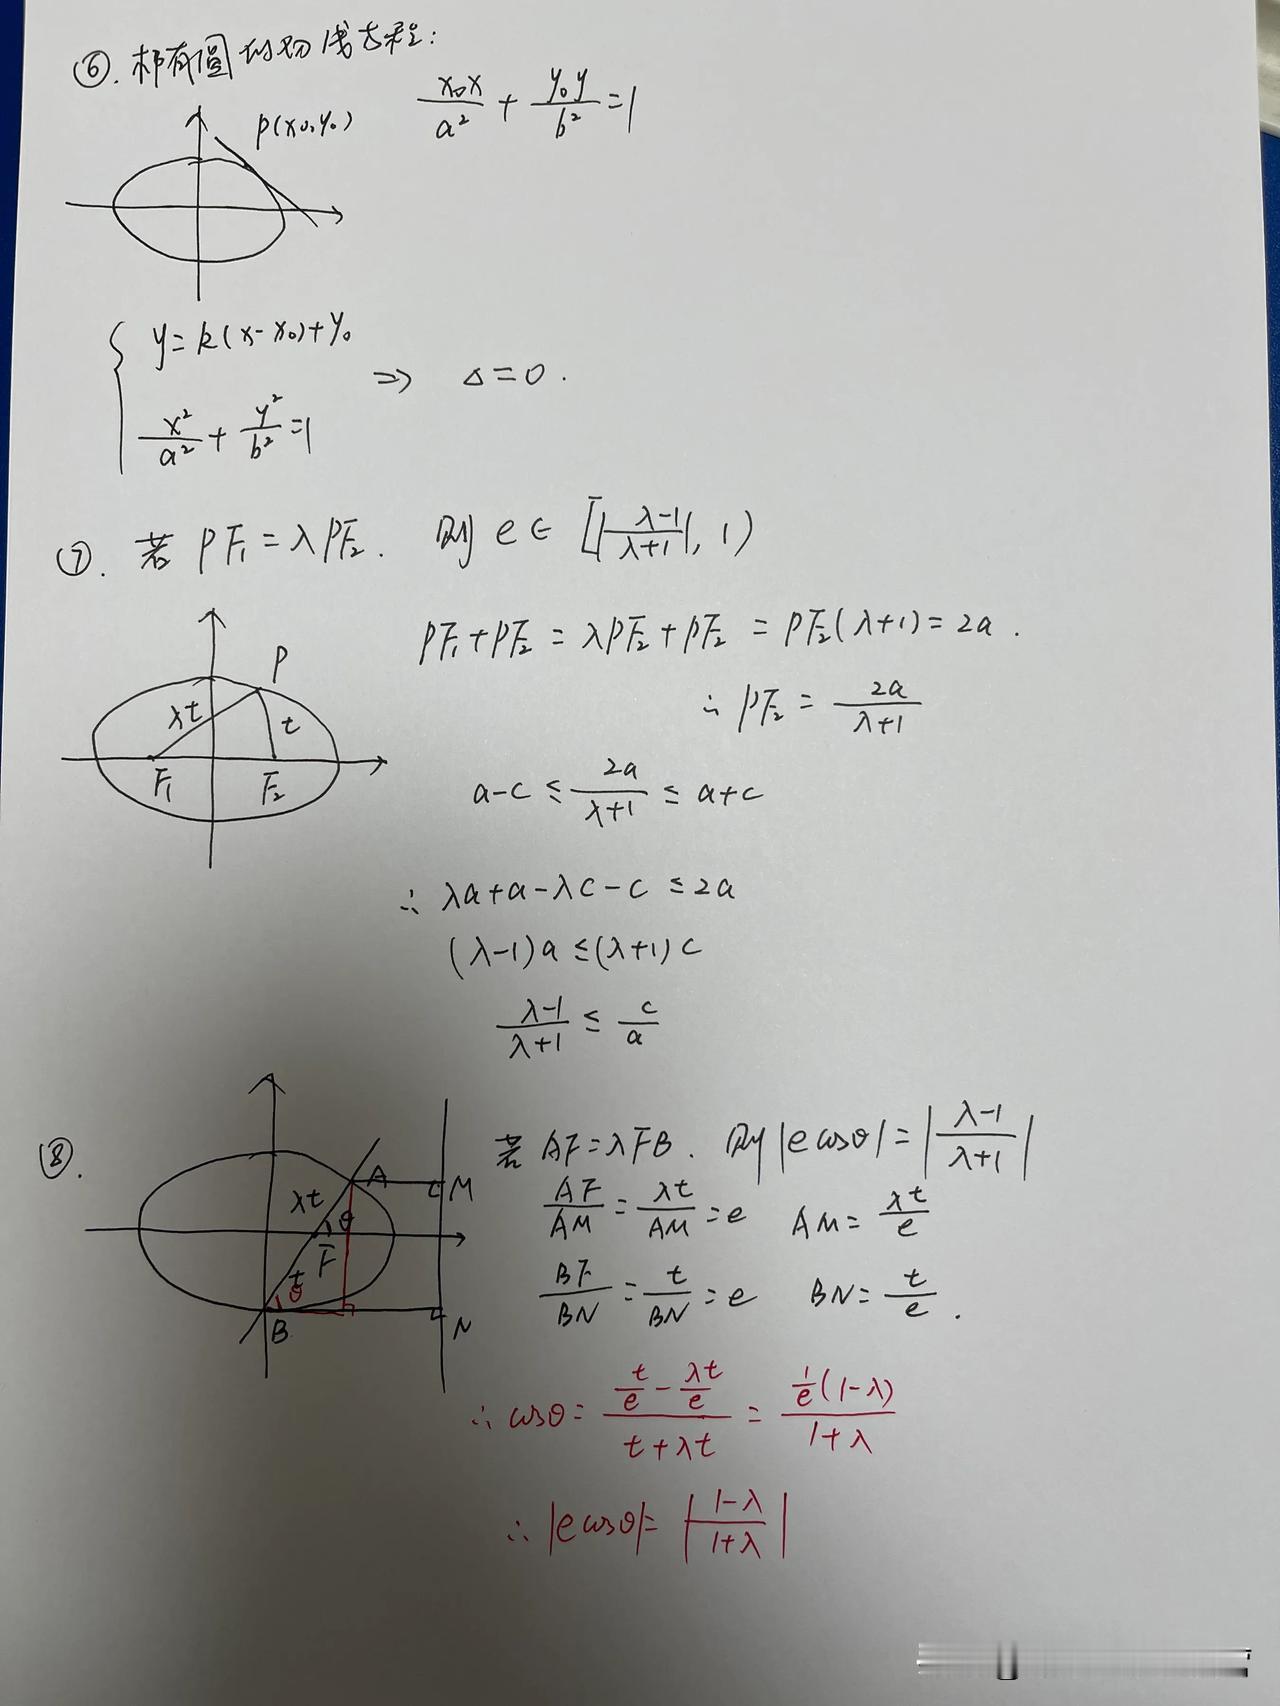 ⑥. 椭圆的切线方程:
x₀x/a² + y₀y/b² = 1
P(x₀,y₀)
{ y = k(x-x₀)+y₀
x²/a² + y²/b² = 1
⇒ Δ=0.
⑦. 若 PF₁=λPF₂. 则 e∈[|λ-1/λ+1|, 1)
P
λt
t
F₁
F₂
PF₁+PF₂ = λPF₂+PF₂ = PF₂(λ+1) = 2a.
∴ PF₂ = 2a/λ+1
a-c ≤ 2a/λ+1 ≤ a+c
∴ λa+a-λc-c ≤ 2a
(λ-1)a ≤ (λ+1)c
λ-1/λ+1 ≤ c/a
⑧.
A
M
λt
θ
F
t
θ
B
N
若 AF=λFB. 则 |ecosθ| = |λ-1/λ+1|
AF/AM = λt/AM = e AM = λt/e
BF/BN = t/BN = e BN = t/e.
∴ cosθ = (t/e - λt/e)/(t+λt) = 1/e(1-λ)/(1+λ)
∴ |ecosθ| = |1-λ/1+λ|